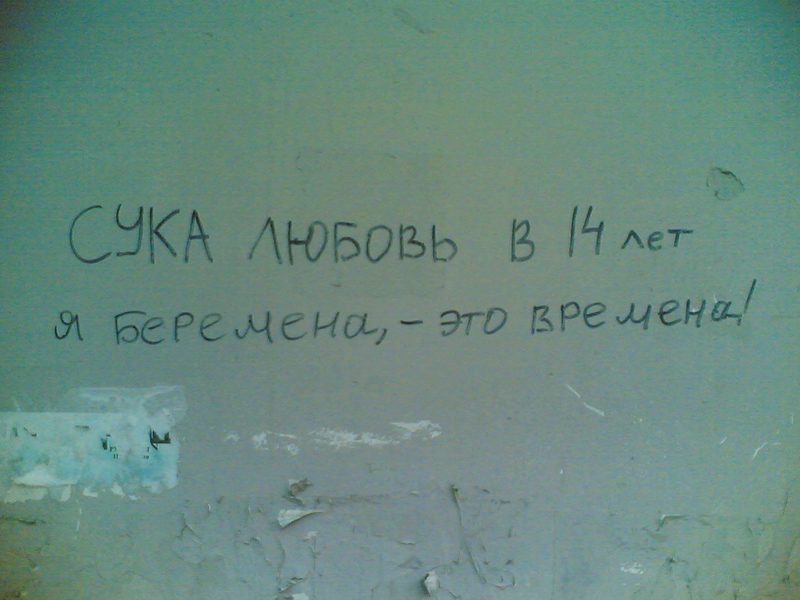 СУКА ЛЮБОВЬ В 14 лет
я беремена,- это времена!